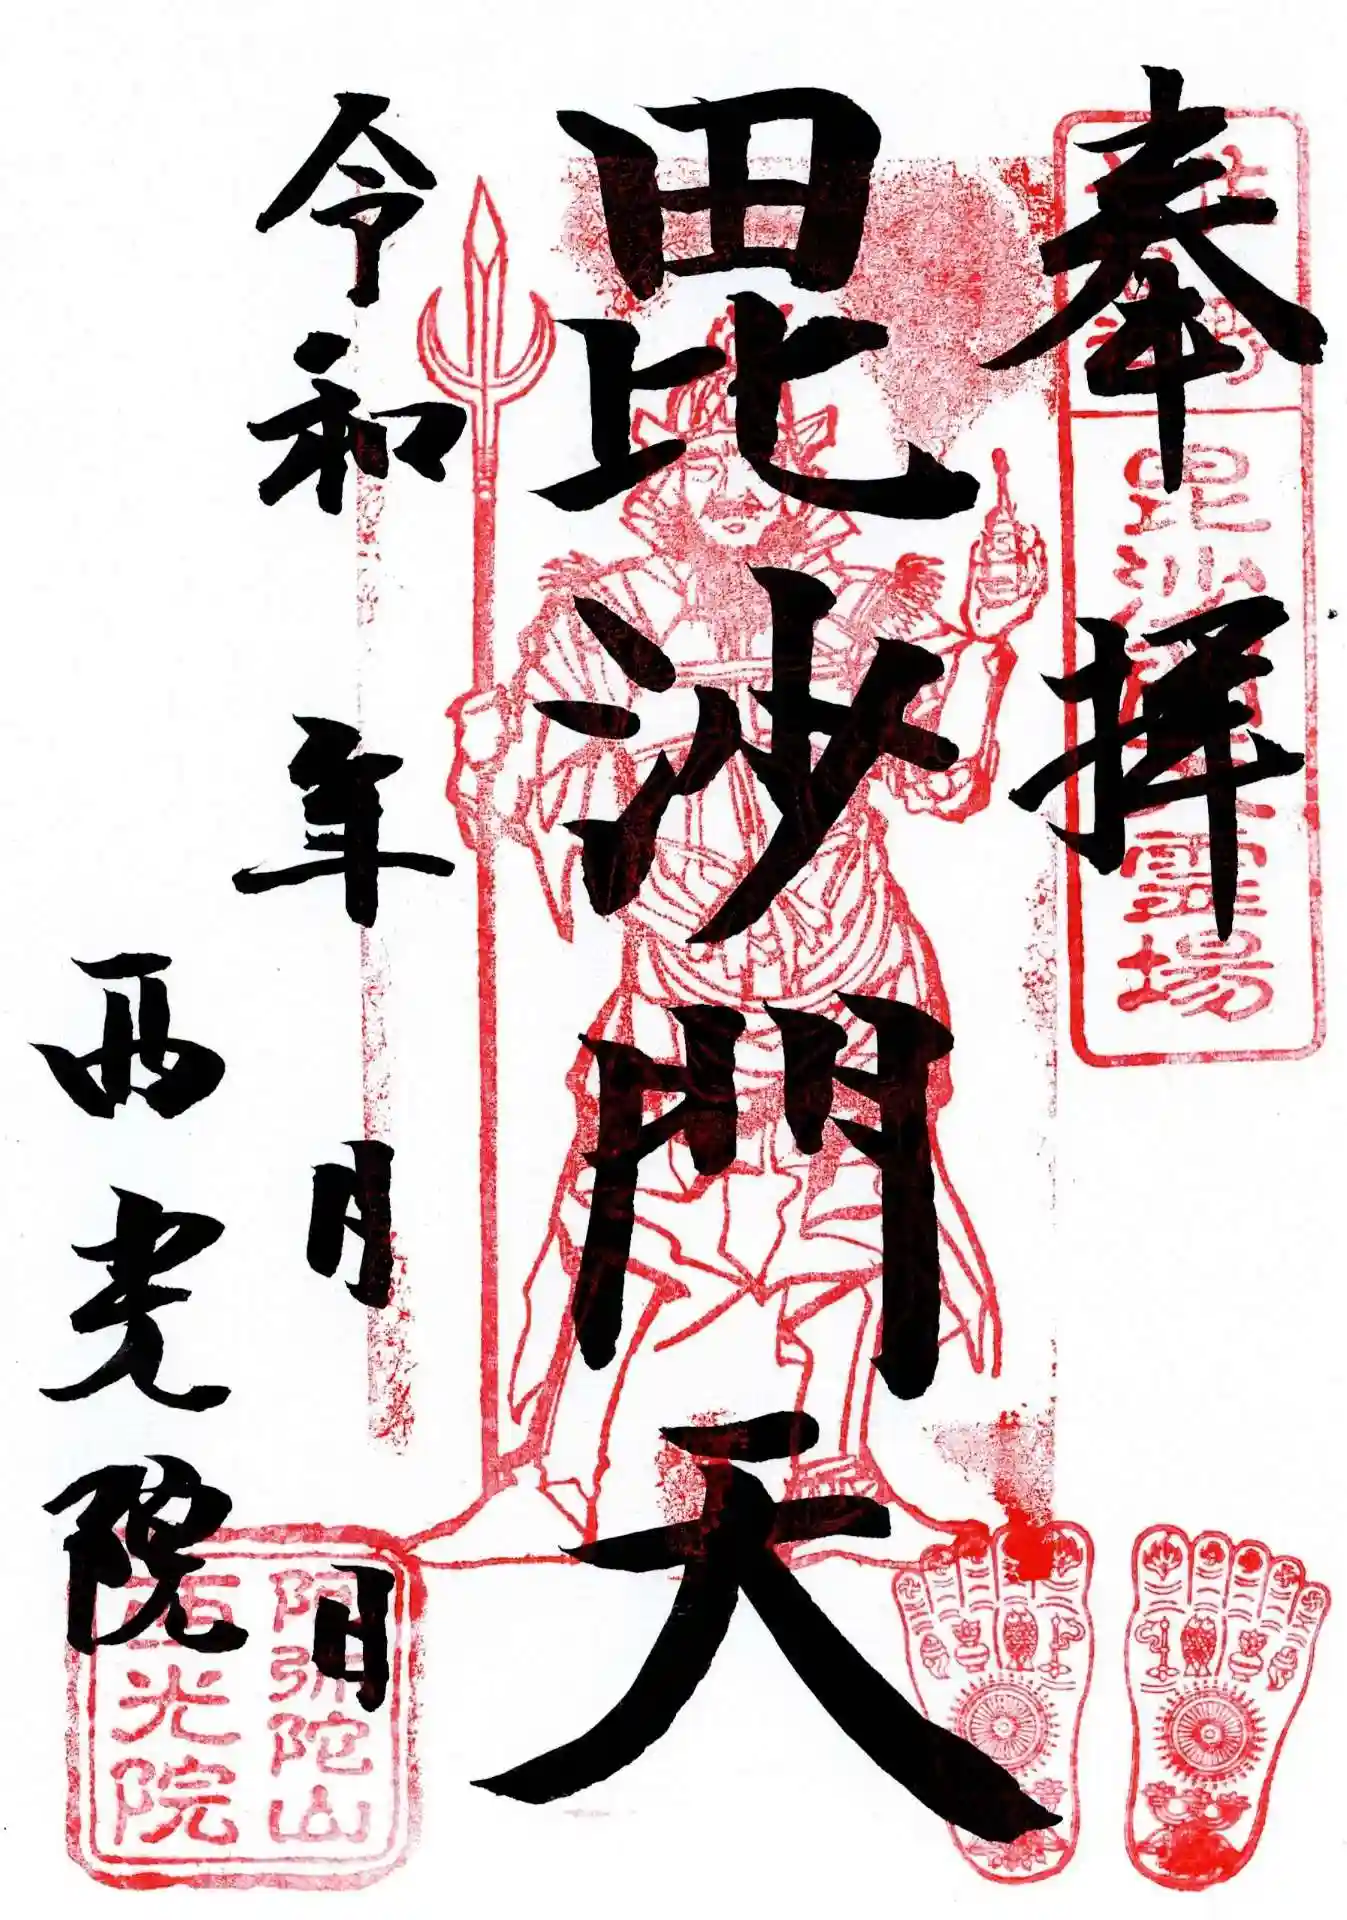 奉拝
毘沙門天
令和 年 月 日
西光院
毘沙門天霊場
阿弥陀山
西光院